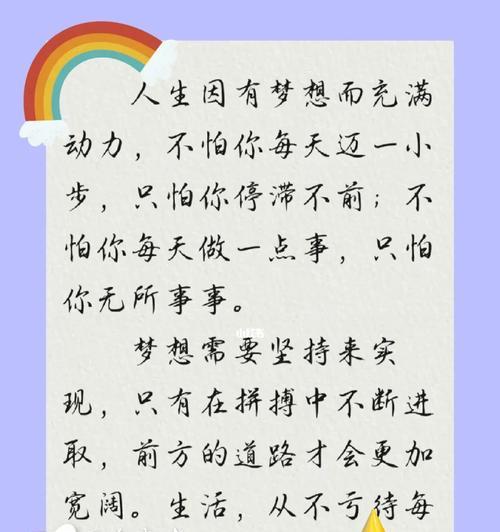 人生因有梦想而充满
动力，不怕你每天迈一小
步，只怕你停滞不前；不
怕你每天做一点事，只怕
你无所事事。
小红书
梦想需要坚持来实
现，只有在拼搏中不断进
取，前方的道路才会更加
宽阔。生活，从不亏待每